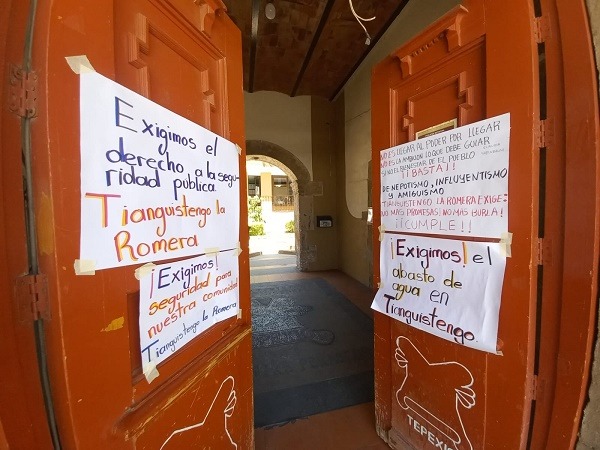 Exigimos el
derecho a la segu-
ridad pública
Tianguistengo la
Romera
¡Exigimos!
seguridad para
nuestra comunidad
Tianguistengo la Romera
NO ES LLEGAR AL PODER POR LLEGAR
NO ES LA AMBICIÓN LO QUE DEBE GUIAR
SI NO EL BIENESTAR DE EL PUEBLO
¡¡BASTA!!
DE NEPOTISMO, INFLUYENTISMO
Y AMIGUISMO
TIANGUISTENGO LA ROMERA EXIGE:
NO MÁS PROMESAS! NO MÁS BURLA!
¡¡CUMPLE!!
¡Exigimos! el
abasto de
agua en
Tianguistengo
TEPEXI